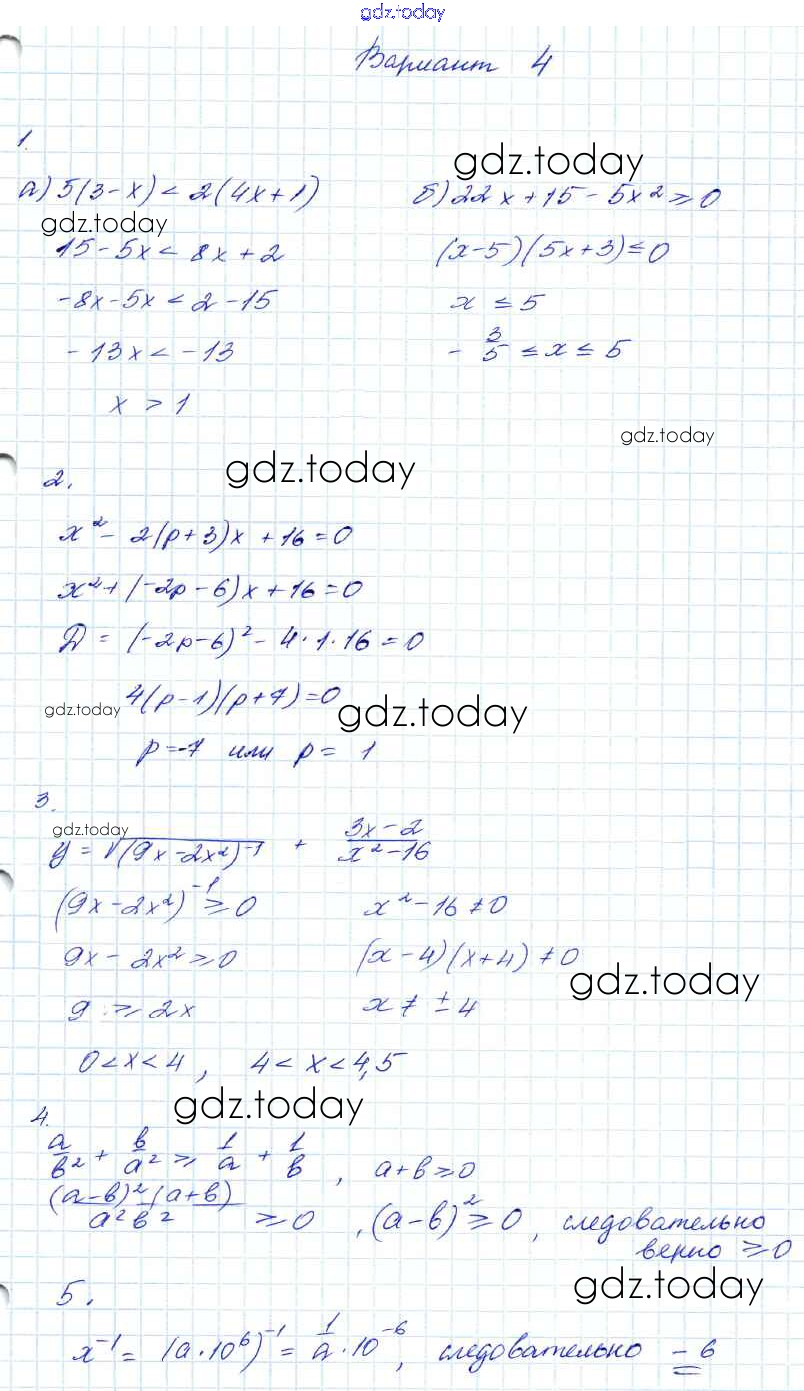 gdz.today
Вариант 4
1.
gdz.today
а) 5(3-x) < 2(4x+1)
б) 22x+15-5x² ≥ 0
gdz.today
15-5x < 8x+2
(x-5)(5x+3) ≤ 0
-8x-5x < 2-15
x ≤ 5
-13x < -13
- 3/5 ≤ x ≤ 5
x > 1
gdz.today
gdz.today
2.
x² - 2(p+3)x + 16 = 0
x² + (-2p-6)x + 16 = 0
D = (-2p-6)² - 4·1·16 = 0
4(p-1)(p+7) = 0
gdz.today
gdz.today
p = -7 или p = 1
3.
gdz.today
y = √(9x-2x²)⁻¹ + (3x-2)/(x²-16)
(9x-2x²)⁻¹ ≥ 0
x²-16 ≠ 0
9x - 2x² ≥ 0
(x-4)(x+4) ≠ 0
gdz.today
9 ≥ 2x
x ≠ ±4
0 < x < 4, 4 < x < 4,5
gdz.today
4.
a/b² + b/a² ≥ 1/a + 1/b, a+b ≥ 0
(a-b)²(a+b)/a²b² ≥ 0, (a-b)² ≥ 0, следовательно
верно ≥ 0
gdz.today
5.
x⁻¹ = (a·10⁶)⁻¹ = 1/a · 10⁻⁶, следовательно -6